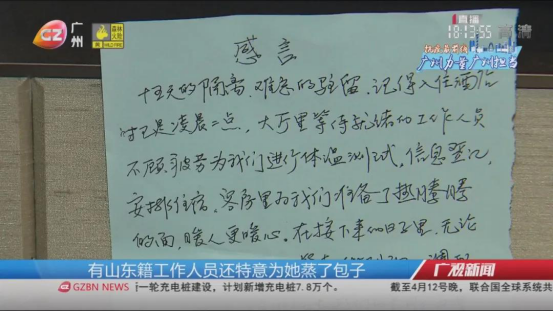 广州
直播
18:13:55
高清
感言
十五天的隔离,难忘的驻留,记得入住酒店
时已是凌晨二点,大厅里等待就绪的工作人员
不顾疲劳为我们进行体温测试,信息登记,
安排住宿,客房里为我们准备了热腾腾
的面,暖人更暖心。在接下来的日子里,无论
有山东籍工作人员还特意为她蒸了包子
广视新闻
GZBN NEWS
一轮充电桩建设,计划新增充电桩7.8万个。
截至4月12号晚,联合国全球系统共